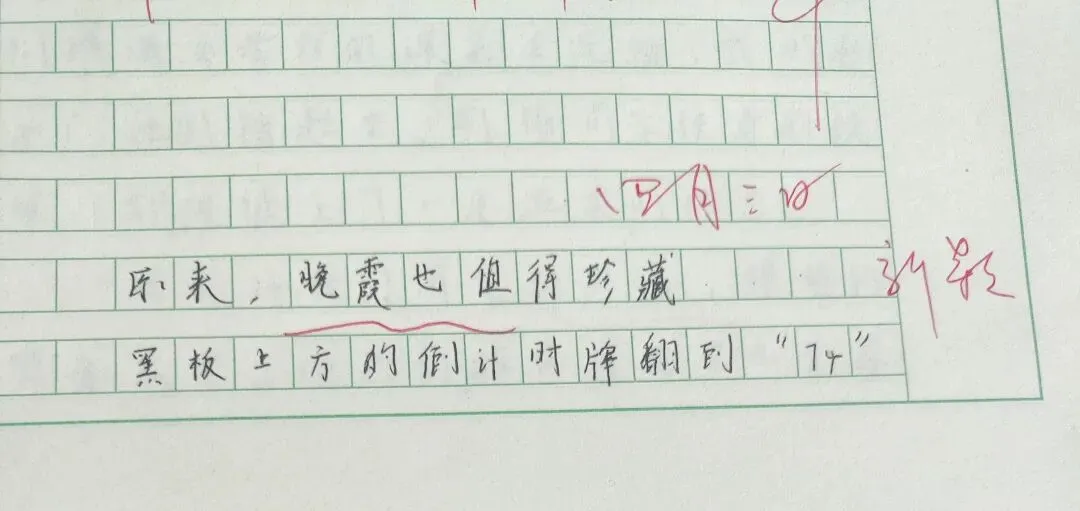 四月三日
原来，晚霞也值得珍藏
黑板上方的倒计时牌翻到“74”